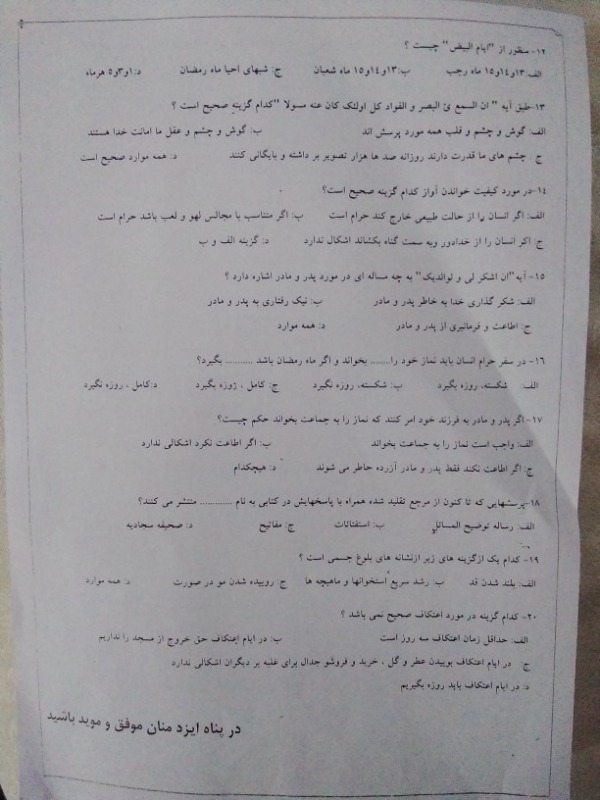 ۱۲- منظور از "ایام البیض" چیست ؟
الف:۱۳و۱۴و۱۵ ماه رجب ب:۱۳و۱۴و۱۵ ماه شعبان ج: شبهای احیا ماه رمضان د:۱و۳و۵ هرماه
۱۳-طبق آیه " ان السمع ئ البصر و الفواد کل اولئک کان عنه مسولا "کدام گزینه صحیح است ؟
الف: گوش و چشم و قلب همه مورد پرسش اند ب: گوش و چشم و عقل ما امانت خدا هستند
ج : چشم های ما قدرت دارند روزانه صد ها هزار تصویر بر داشته و بایگانی کنند د: همه موارد صحیح است
۱۴-در مورد کیفیت خواندن آواز کدام گزینه صحیح است؟
الف: اگر انسان را از حالت طبیعی خارج کند حرام است ب: اگر متناسب با مجالس لهو و لعب باشد حرام است
ج: اکر انسان را از خدادور وبه سمت گناه بکشاند اشکال ندارد د: گزینه الف و ب
۱۵- آیه"ان اشکر لی و لوالدیک" به چه مساله ای در مورد پدر و مادر اشاره دارد ؟
الف: شکر گذاری خدا به خاطر پدر و مادر ب: نیک رفتاری به پدر و مادر
ج: اطاعت و فرمانبری از پدر و مادر د: همه موارد
۱۶- در سفر حرام انسان باید نماز خود را ....... بخواند و اگر ماه رمضان باشد ........... بگیرد؟
الف: شکسته، روزه بگیرد ب: شکسته، روزه نگیرد ج: کامل ، روزه بگیرد د:کامل ، روزه نگیرد
۱۷- اگر پدر و مادر به فرزند خود امر کنند که نماز را به جماعت بخواند حکم چیست؟
الف: واجب است نماز را به جماعت بخواند ب: اگر اطاعت نکرد اشکالی ندارد
ج: اگر اطاعت نکند فقط پدر و مادر آزرده خاطر می شوند د: هیچکدام
۱۸-پرسشهایی که تا کنون از مرجع تقلید شده همراه با پاسخهایش در کتابی به نام ............ منتشر می کنند؟
الف: رساله توضیح المسائل ب: استفتائات ج: مفاتیح د: صحیفه سجادیه
۱۹- کدام یک ازگزینه های زیر ازنشانه های بلوغ جسمی است ؟
الف: بلند شدن قد ب: رشد سریع استخوانها و ماهیچه ها ج: روییده شدن مو در صورت د: همه موارد
۲۰- کدام گزینه در مورد اعتکاف صحیح نمی باشد ؟
الف: حداقل زمان اعتکاف سه روز است ب: در ایام اعتکاف حق خروج از مسجد را نداریم
ج: در ایام اعتکاف بوییدن عطر و گل ، خرید و فروشو جدال برای غلبه بر دیگران اشکالی ندارد
د: در ایام اعتکاف باید روزه بگیریم
در پناه ایزد منان موفق و موید باشید